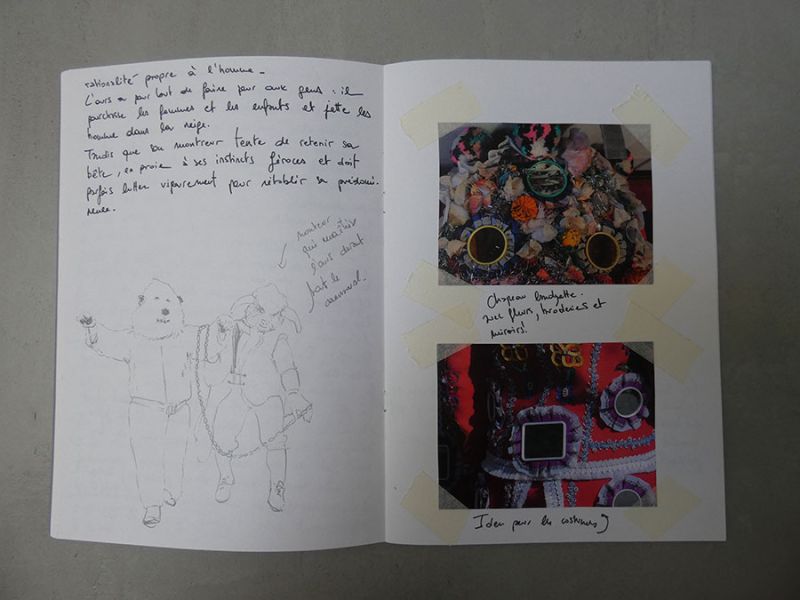 rationalité propre à l'homme.
L'ours a pour but de faire peur aux gens : il
pourchasse les femmes et les enfants et jette les
homme dans la neige.
Tandis que son montreur tente de retenir sa
bête, en proie à ses instincts féroces et doit
parfois lutter vigoureusement pour rétablir sa prédomi-
nence.
montreur
qui maîtrise
l'ours durant
tout le
carnaval.
Chapeau
avec fleurs, broderies et
miroirs!
Idem pour les costumes